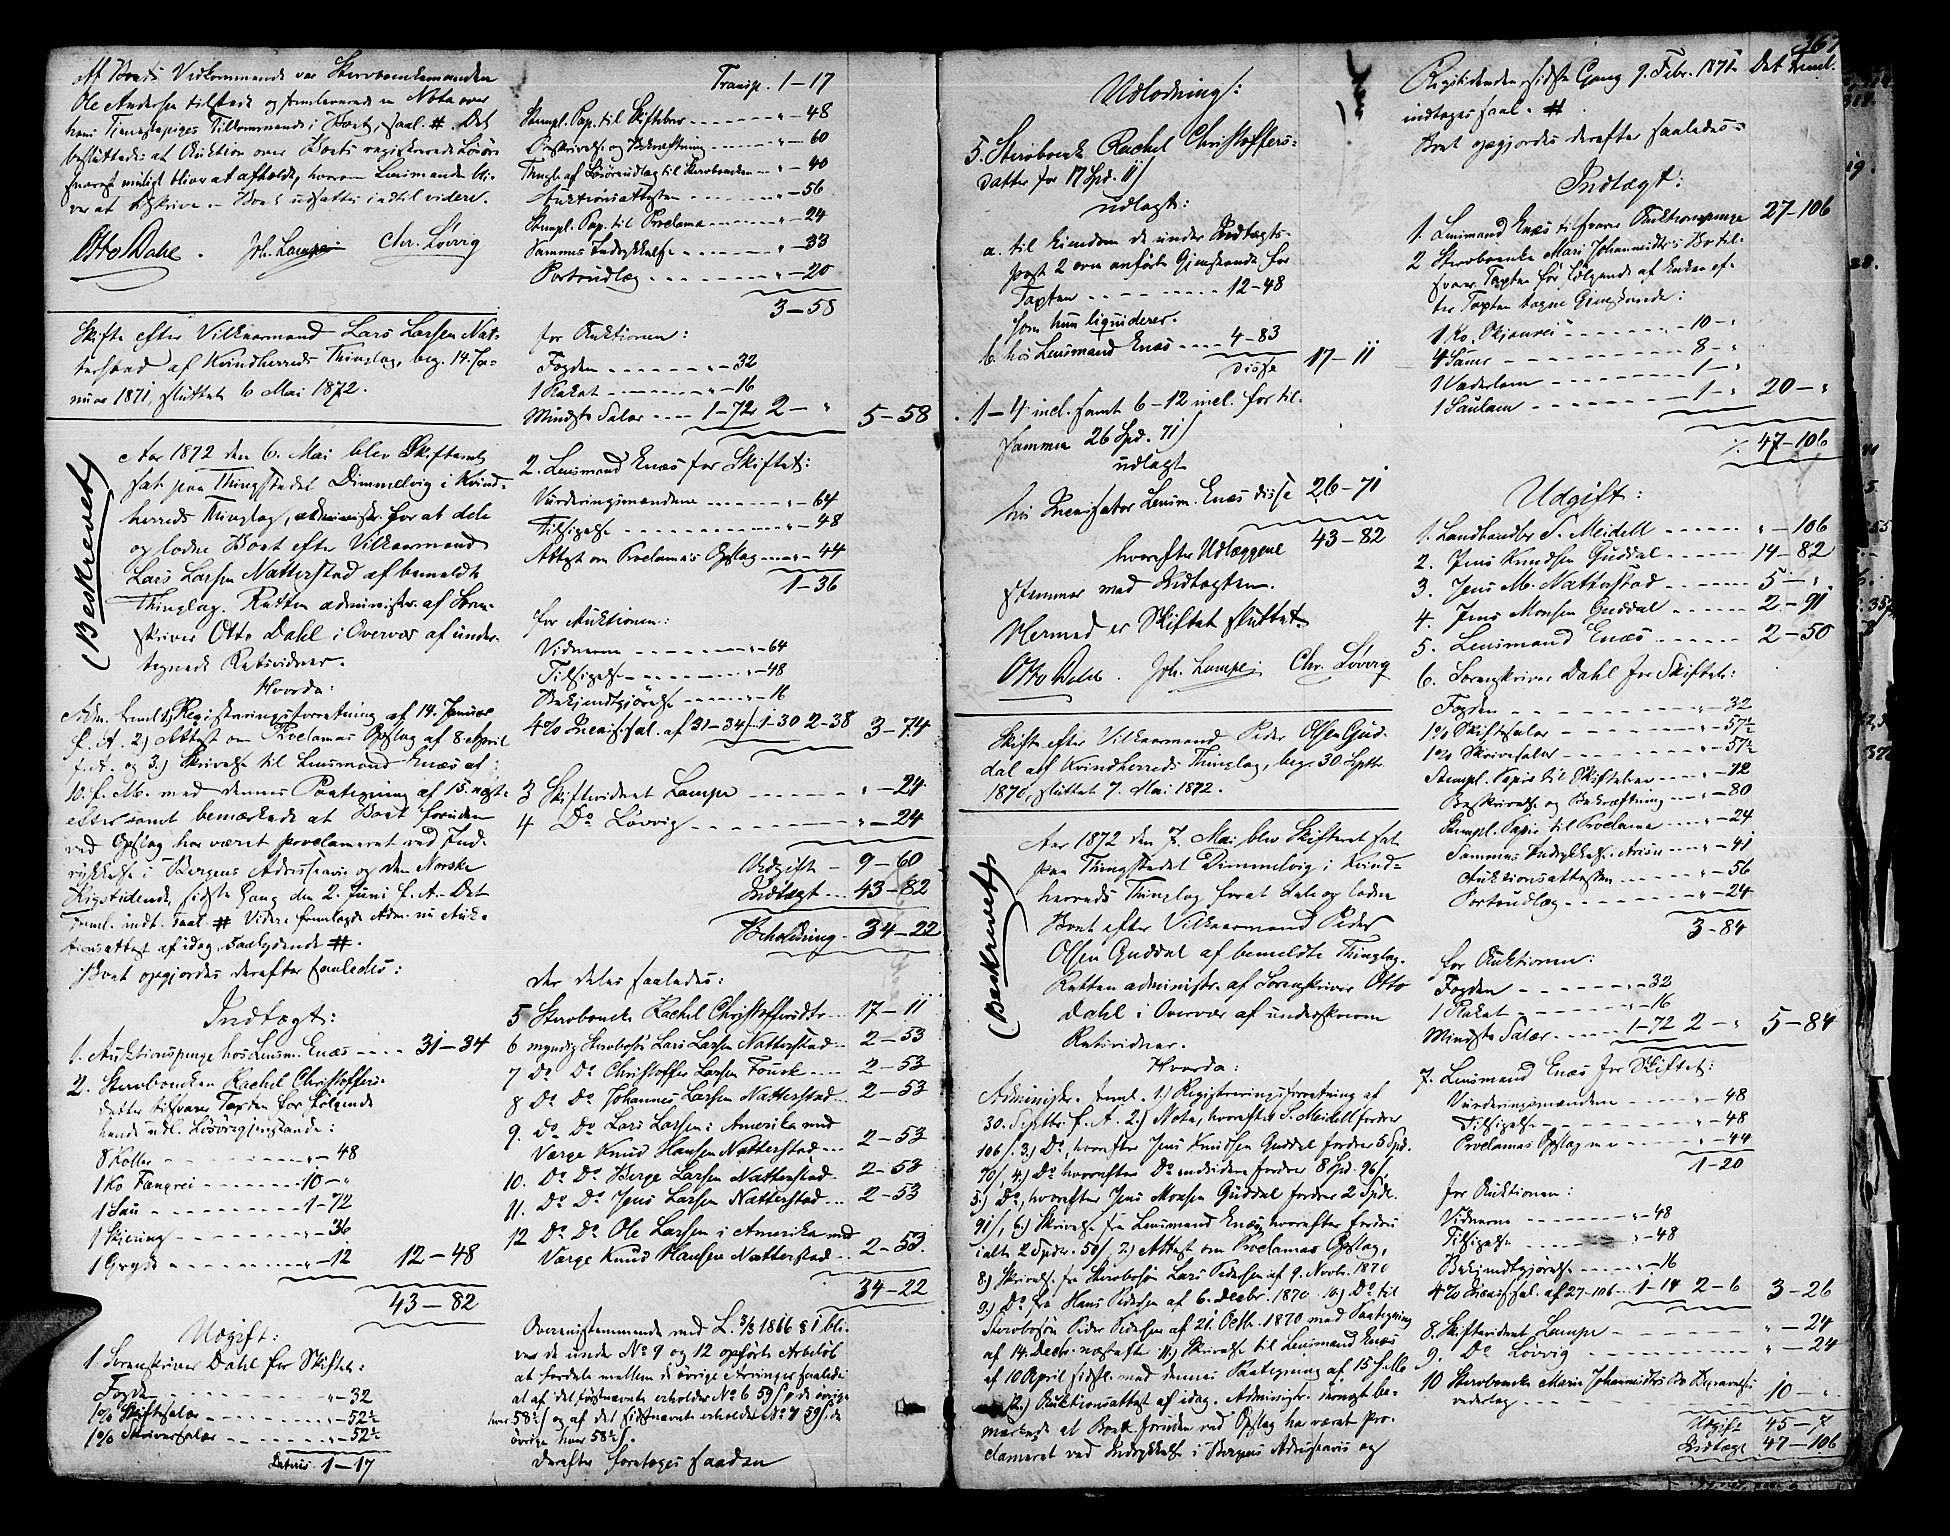 Af Boets Vedkommende var Sterboenkemanden
Ole Andersen tilstede og fremleverede en Nota over
hans Tjenestepiges Tilkommende i Boet, saal. #. Det
besluttedes at Auktion over Boets registrerede Løsøre
snarest muligt bliver at afholde, hvorom Lensmanden bli-
ver at tilskrive. – Boet udsattes indtil videre.
Otto Dahl. Joh. Lampe Chr. Løvvig
Skifte efter Vilkaarmand Lars Larsen Nat-
terstad af Kvindherreds Thinglag, beg. 14. Ja-
nuar 1871, sluttet 6 Mai 1872.
(Beskrevet)
Aar 1872 den 6. Mai blev Skifteret
sat paa Thingstedet Dimmelvig i Kvind-
herreds Thinglag, for at dele
og lodne Boet efter Vilkaarmand
Lars Larsen Natterstad af bemeldte
Thinglag. Retten administr. af Soren-
skriver Otto Dahl i Overvær af under-
tegnede Retsvidner.
Hvorda:
Adm. freml. 1) Registreringsforretning af 14. Januar
f. A. 2) Attest om Proclamas Opslag af 8 April
f. A. og 3.) Skrivelse til Lensmand Enæs af
10. f. M. med dennes Paategning af 15. næst-
efter samt bemærkede at Boet foruden
ved Opslag har været proclameret ved Ind-
rykkelse i Bergens Adresseavis og den Norske
Rigstidende, sidste Gang den 2. Juni f. A. Det
freml. indt. saal. # Videre fremlagde Adm. en Auk-
tionsattest af idag, saalydende #.
Boet opgjordes derefter saaledes:
Indtægt:
1. Auktionspenge hos Lensm. Enæs .... 31–34
2. Sterboenken Rachel Christoffers-
datter tilsvarer Taxten for følgende
hende udl. Løsøregjenstande:
8 Koller - - - „–48
1 Ko Fangrei - - - 10–„
1 Sau - - - 1–72
1 Skjering - - - „–36
1 Gryde - - - „–12 12–48
43–82
Udgift:
1. Sorenskriver Dahl for Skiftet:
Fogden - - - „–32
1% Skiftesalær - - - „–52½
1% Skriversalær - - - „–52½
Lateris 1–17
Transp. 1–17
Stempl. Pap. til Skiftebrev - - - „–48
Beskrivelse og Bekræftning - - - „–60
Thingl. af Løsøreudlæg til Sterboenken - - „–40
Auktionsattesten - - - „–56
Stempl. Pap. til Proclama - - - „–24
Sammes Indrykkelse - - - „–33
Portoudlæg - - - „–20
3–58
for Auktionen:
Fogden - - - „–32
1 Plakat - - - „–16
Mindste Salær - - - 1–72 2–„ 5–58
2. Lensmand Enæs for Skiftet:
Vurderingsmændene - - - „–64
Tilsigelse - - - „–48
Attest om Proclamas Opslag - - - „–44
1–36
for Auktionen:
Vidnerne - - - „–64
Tilsigelse - - - „–48
Bekjendtgjørelse - - - „–16
4% Incassosal. af 31–34 1–30 2–38 3–74
3 Skiftevidnet Lampe - - - „–24
4 Do Løvvig - - - „–24
Udgift – 9–60
Indtægt – 43–82
Beholdning – 34–22
der deles saaledes:
5 Sterboenke Rachel Christoffersdtr - - 17–11
6 myndig Sterbosøn Lars Larsen Natterstad.. 2–53
7 Do Do Christoffer Larsen Fousk ... 2–53
8 Do Do Johannes Larsen Natterstad.. 2–53
9. Do Do Lars Larsen i Amerika med
Værge Knud Hansen Natterstad... 2–53
10. Do Do Børge Larsen Natterstad 2–53
11. Do Do Jens Larsen Natterstad... 2–53
12 Do Do Ole Larsen i Amerika med
Værge Knud Hansen Natterstad.. 2–53
34–22
Overensstemmende med L. 3/3 1866 § 1 bli-
ver de under No 9 og 12 opførte Arvelod
at fordele mellem de øvrige Arvinger saaledes
at af det førstnævnte erholder No 6 59 § de øvrige
hver 58½ § og af det sidstnævnte erholder No 7 59 § de
øvrige hver 58½ §.
Derefter foretoges saadan
Udlodning:
5. Sterboenke Rachel Christoffers-
datter for 17 Spd. 11 §
udlagt:
a. til Eiendom de under Indtægts-
post 2 oven anførte Gjenstande for
Taxten - - - 12–48
som hun liquiderer.
b. hos Lensmand Enæs - - - 4–83
disse 17–11
1–4 incl. samt 6–12 incl. for til-
sammen 26 Spd. 71 §
udlagt
hos Incassator Lensm. Enæs disse 26–71
hvorefter Udlæggene 43–82
stemmer med Indtægten.
Hermed er Skiftet sluttet.
Otto Dahl. Joh. Lampe. Chr. Løvvig
Skifte efter Vilkaarmand Peder Olsen Gud-
dal af Kvindherreds Thinglag, beg. 30. Septbr.
1870, sluttet 7. Mai 1872.
(Beskrevet)
Aar 1872 den 7. Mai blev Skifteret sat
paa Thingstedet Dimmelvig i Kvind-
herreds Thinglag for at dele og lodne
Boet efter Vilkaarmand Peder
Olsen Guddal af bemeldte Thinglag.
Retten administr. af Sorenskriver Otto
Dahl i Overvær af underskrevne
Retsvidner.
Hvorda:
Administr. freml. 1) Registreringsforretning af
30. Septbr. f. A. 2.) Nota, hvorefter S. Meidell fordrer
106 §. 3.) Do, hvorefter Jens Knudsen Guddal fordrer 5 Spd.
70 §, 4.) Do hvorefter Do endvidere fordrer 8 Spd. 96 §,
5.) Do, hvorefter Jens Monsen Guddal fordrer 2 Spdl.
91 §, 6.) Skrivelse fra Lensmand Enæs hvorefter fordres
ialt 2 Spdr. 50 §, 7.) Attest om Proclamas Opslag,
8.) Skrivelse fra Sterbosøn Lars Pedersen af 9. Novbr. 1870
9.) Do fra Hans Pedersen af 6. Decbr. 1870 10.) Do til
Sterbosøn Peder Pedersen af 21. Octbr. 1870 med Paategning
af 14. Decbr. næstefter 11.) Skrivelse til Lensmand Enæs
af 10 April sidstl. med dennes Paategning af 15 s. M.
12.) Auktionsattest af idag. Administr. iøvrigt be-
mærkede at Boet foruden ved Opslag har været pro-
clameret ved Indrykkelse i Bergens Adresseavis og
367
Rigstidenden, sidste Gang 9. Febr. 1871. Det freml.
indtages saal. #.
Boet opgjordes derefter saaledes:
Indtægt:
1. Lensmand Enæs tilsvarer Auktionspenge 27–106
2 Sterboenke Mari Johannesdtr. Bo til-
svarer Taxten for følgende af Enken ef-
ter Taxten tagne Gjenstande:
1 Ko, Skjønrei - - - 10–„
4 Sauer - - - 8–„
1 Væderlam - - - 1–„
1 Saulam - - - 1–„ 20–„
47–106
Udgift:
1. Landhandler S. Meidell - - - „–106
2. Jens Knudsen Guddal - - - 14–82
3. Jens M. Natterstad - - - 5–„
4. Jens Monsen Guddal - - - 2–91
5. Lensmand Enæs - - - 2–50
6. Sorenskriver Dahl for Skiftet:
Fogden - - - „–32
1% Skiftesalær - - - „–57½
1% Skriversalær - - - „–57½
Stempl. Papir til Skiftebrev - - - „–72
Beskrivelse og Bekræftning - - „–80
Stempl. Papir til Proclama - - - „–24
Sammes Indrykkelse Avisen - - „–41
Auktionsattesten - - - „–56
Portoudlæg - - - „–24
3–84
for Auktionen:
Fogden - - - „–32
1 Plakat - - - „–16
Mindste Salær - - - 1–72 2–„ 5–84
7. Lensmand Enæs for Skiftet:
Vurderingsmændene - - - „–48
Tilsigelse - - - „–48
Proclamas Opslag - - - „–44
1–20
for Auktionen:
Vidnerne - - - „–48
Tilsigelse - - - „–48
Bekjendtgjørelse - - - „–16
4% Incassosal. af 27–106 1–14 2–6 3–26
8. Skiftevidnet Lampe - - - „–24
9. Do Løvvig - - - „–24
10 Sterboenke Marie Johannesdtrs Bo Begravelses-
vederlag - - - 10–„
Udgift 45–7
Indtægt 47–106